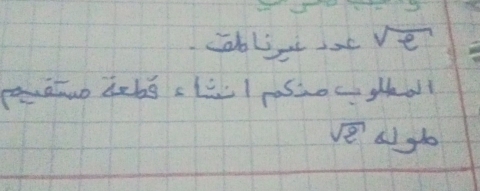 √2 عدد غير ناطق.
المطلوب منكم انشاء قطعة مستقيم
طوله √2